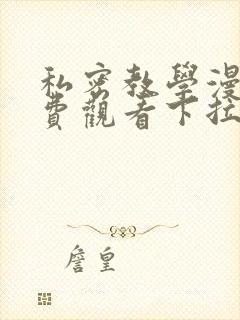 私密教學漫
費觀看下拉
詹皇